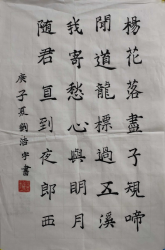 楊花落盡子規啼
聞道龍標過五溪
我寄愁心與明月
隨君直到夜郎西
庚子夏劉浩宇書